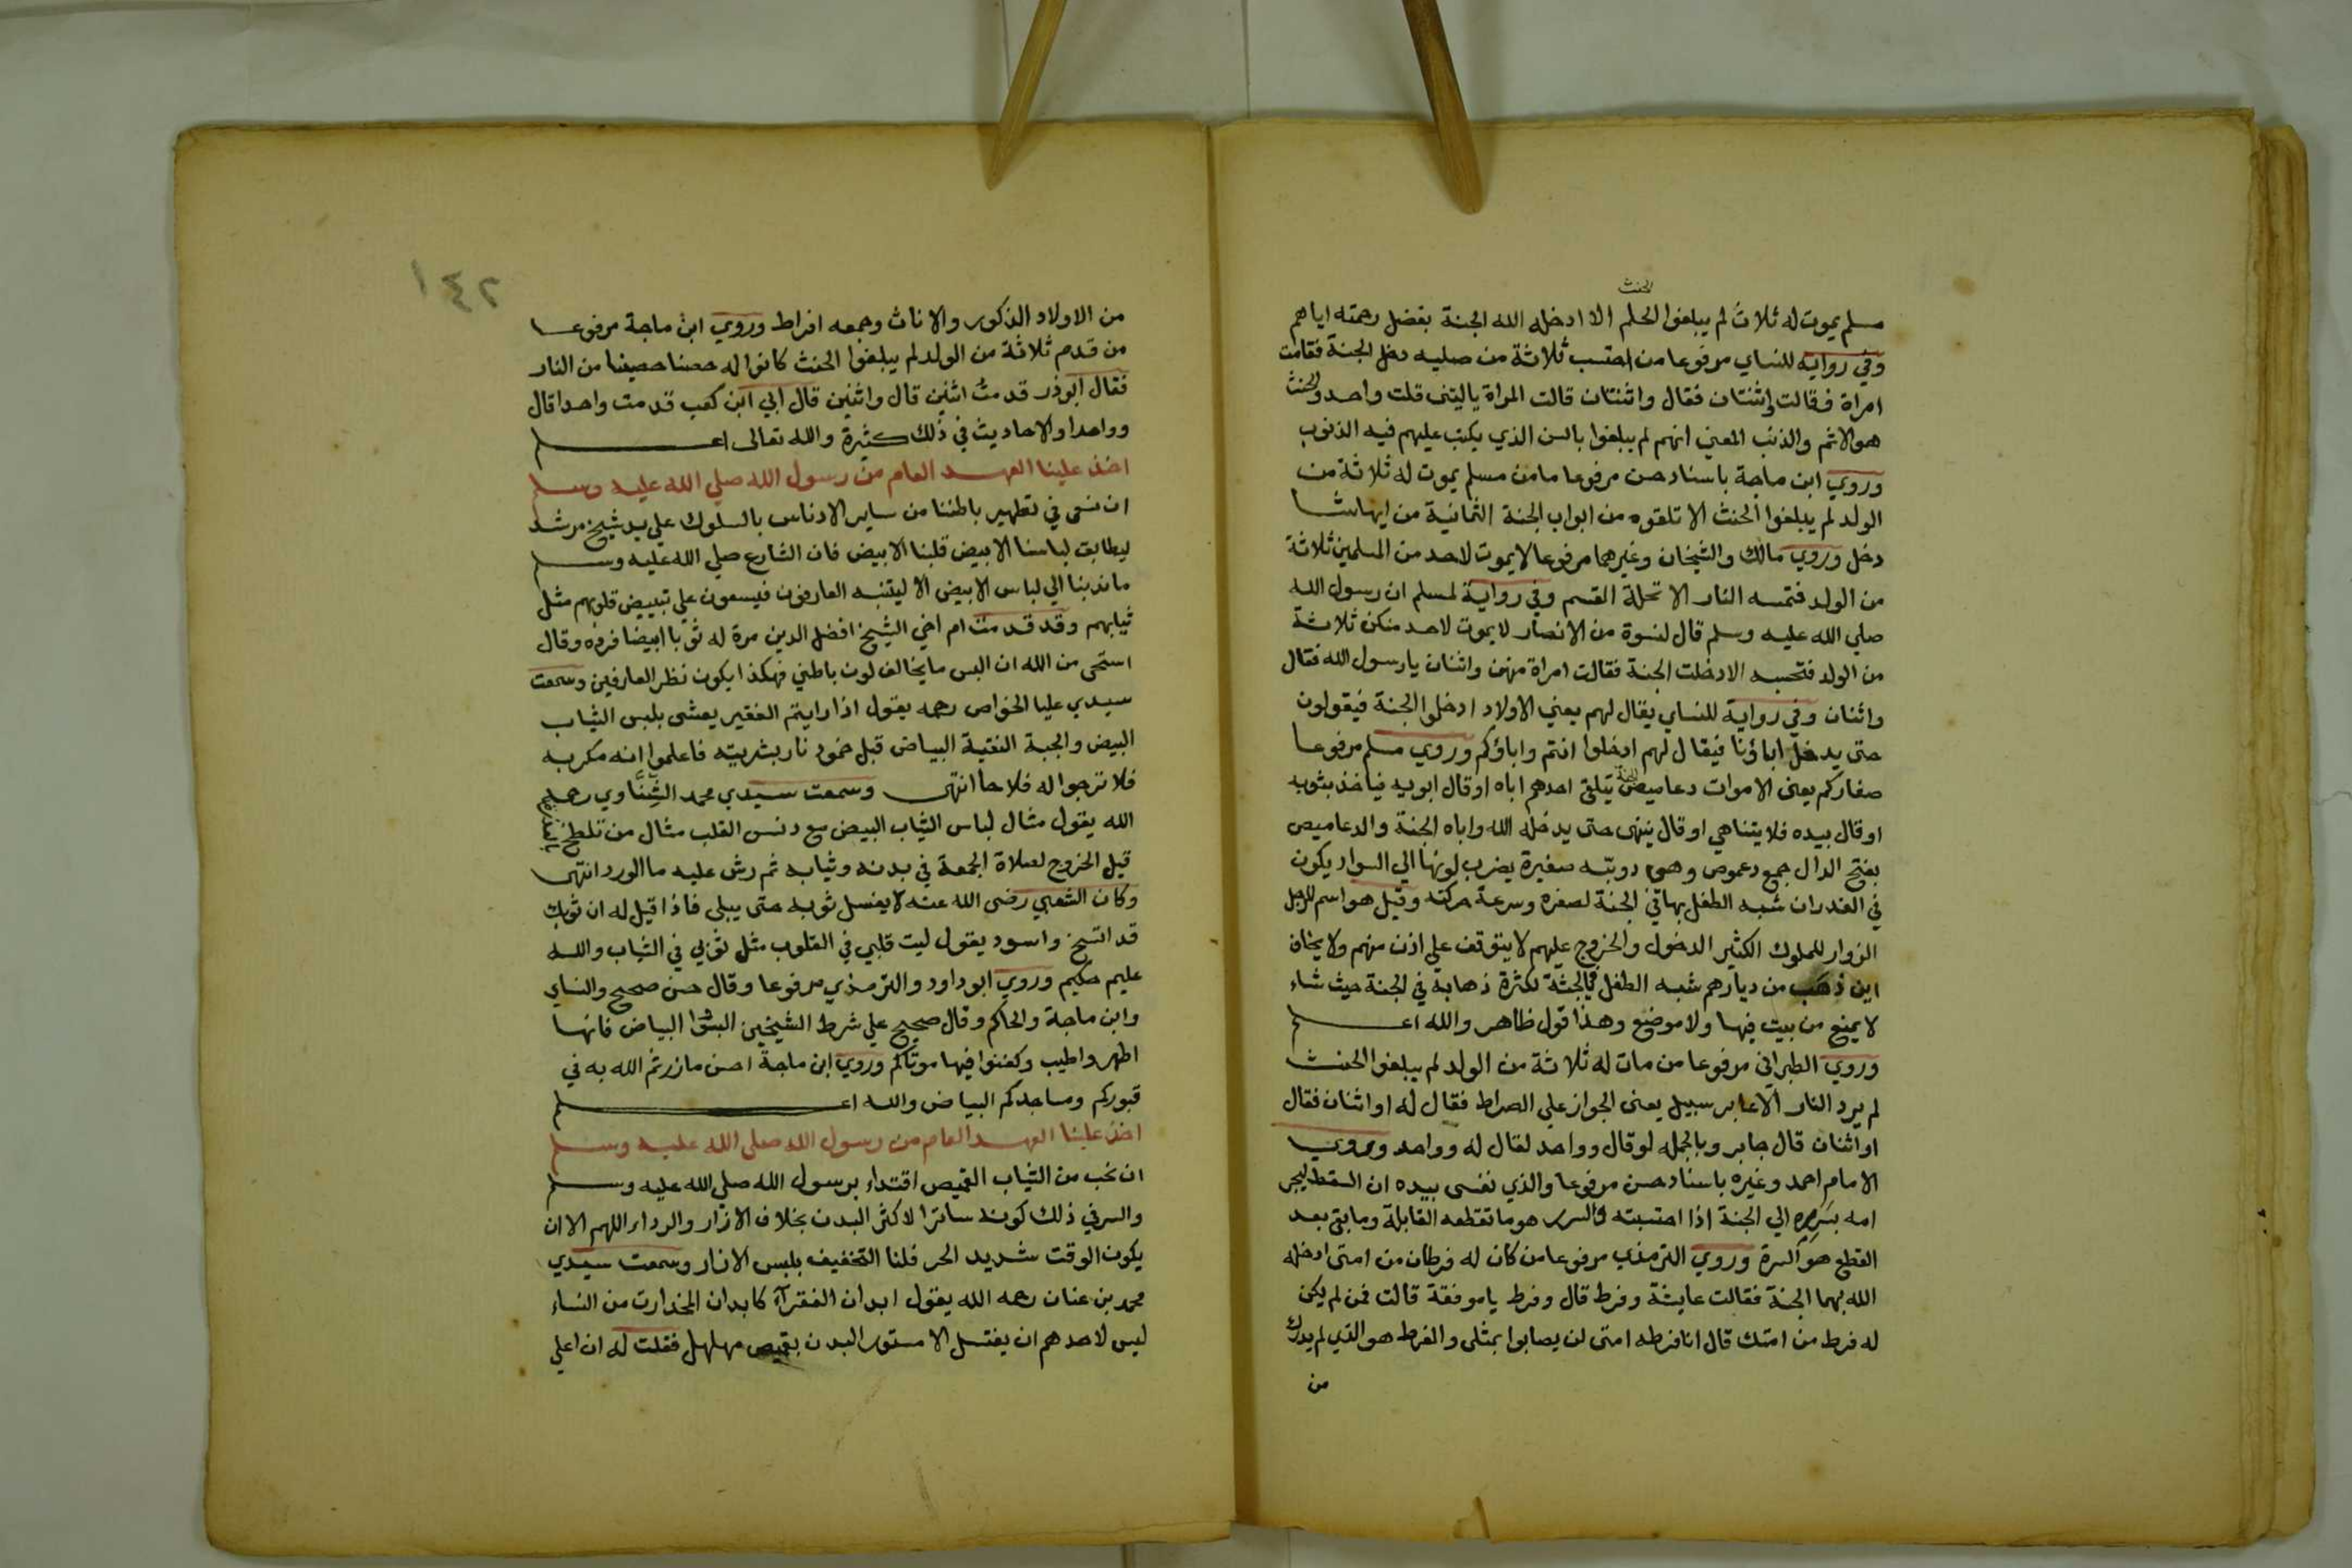 الحنث
مسلم يموت له ثلاث لم يبلغوا الحلم الا ادخله الله الجنة بفضل رحمته اياهم
وفي رواية للنساي مرفوعا من احتسب ثلاثة من صلبه دخل الجنة فقامت
امراة فقالت واثنتان فقال واثنتان قالت المراة ياليتني قلت واحد والحنث
هو الاثم والذنب المعني انهم لم يبلغوا بالسن الذي يكتب عليهم فيه الذنوب
وروي ابن ماجة باسناد حسن مرفوعا ما من مسلم يموت له ثلاثة من
الولد لم يبلغوا الحنث الا تلقوه من ابواب الجنة الثمانية من ايها شا
دخل وروي مالك والشيخان وغيرهما مرفوعا لا يموت لاحد من المسلمين ثلاثة
من الولد فتمسه النار الا تحلة القسم وفي رواية لمسلم ان رسول الله
صلي الله عليه وسلم قال لنسوة من الانصار لا يموت لاحد منكن ثلاثة
من الولد فتحسبه الا دخلت الجنة فقالت امراة منهن واثنان يا رسول الله فقال
واثنان وفي رواية للنساي يقال لهم يعني الاولاد ادخلوا الجنة فيقولون
حتى يدخل اباؤنا فيقال لهم ادخلوا انتم واباؤكم وروي مسلم مرفوعا
صغاركم يعني الاموات دعاميص الجنة يتلقى احدهم اباه او قال ابويه فياخذ بثوبه
او قال بيده فلا يتناهي او قال ينتهى حتى يدخله الله واباه الجنة والدعاميص
بفتح الدال جمع دعموص وهى دويبّه صغيرة يضرب لونها الي السواد يكون
في الغدران شبه الطفل بها في الجنة لصغره وسرعة حركته وقيل هو اسم للرجل
الزوار للملوك الكثير الدخول والخروج عليهم لا يتوقف علي اذن منهم ولا يخاف
اين ذهب من ديارهم شبه الطفل في الجنة لكثرة ذهابه في الجنة حيث شاء
لا يمنع من بيت فيها ولا موضع وهذا قول ظاهر والله اعلم
وروي الطبراني مرفوعا من مات له ثلاثة من الولد لم يبلغوا الحنث
لم يرد النار الا عابر سبيل يعنى الجواز علي الصراط فقال له او اثنان فقال
او اثنان قال جابر وبالجمله لو قال وواحد لقال له وواحد وروي
الامام احمد وغيره باسناد حسن مرفوعا والذي نفسي بيده ان السقط ليجر
امه بسرره الي الجنة اذا احتسبته والسرر هو ما تقطعه القابلة وما بقي بعد
القطع هو السرة وروي الترمذي مرفوعا من كان له فرطان من امتى ادخله
الله بهما الجنة فقالت عايشة وفرط قال وفرط يا موفقة قالت فمن لم يكن
له فرط من امتك قال انا فرطه امتى لن يصابوا بمثلى والفرط هو الذي لم يدرك
من
١٤٢
من الاولاد الذكور والاناث وجمعه افراط وروي ابن ماجة مرفوعا
من قدم ثلاثة من الولد لم يبلغوا الحنث كانوا له حصنا حصينا من النار
فقال ابو ذر قدمتُ اثنين قال واثنين قال ابي ابن كعب قدمت واحدا قال
وواحدا والاحاديث في ذلك كثيرة والله تعالى اعلم
اخذ علينا العهد العام من رسول الله صلي الله عليه وسلم
ان نسعى في تطهير باطننا من ساير الادناس بالسلوك علي يد شيخ مرشد
ليطابق لباسنا الابيض قلبنا الابيض فان الشارع صلي الله عليه وسلم
ما ندبنا الي لباس الابيض الا ليتنبه العارفون فيسعون علي تبييض قلوبهم مثل
ثيابهم وقد قدمت ام اخي الشيخ افضل الدين مرة له ثوبا ابيضا فرده وقال
استحى من الله ان البس ما يخالف لون باطني فهكذا يكون نظر العارفين وسمعت
سيدي عليا الخواص رحمه يقول اذا رايتم الفقير يعشى بلبس الثياب
البيض والجبة النقية البياض قبل خمود نار بشريته فاعلموا انه مكر به
فلا ترجوا له فلاحا انتهى وسمعت سيدي محمد الشِنّاوي رحمه
الله يقول مثال لباس الثياب البيض مع دنس القلب مثال من تلطخ
قبل الخروج لصلاة الجمعة في بدنه وثيابه ثم رش عليه ما الورد انتهى
وكان الشعبي رضى الله عنه لا يغسل ثوبه حتى يبلى فاذا قيل له ان ثوبك
قد اتسخ واسود يقول ليت قلبي في القلوب مثل ثوبي في الثياب والله
عليم حكيم وروي ابو داود والترمذي مرفوعا وقال حسن صحيح والنساي
وابن ماجة والحاكم وقال صحيح علي شرط الشيخين البسوا البياض فانها
اطهر واطيب وكفنوا فيها موتاكم وروي ابن ماجة احسن ما زرتم الله به في
قبوركم ومساجدكم البياض والله اعلم
اخذ علينا العهد العام من رسول الله صلى الله عليه وسلم
ان نحب من الثياب القميص اقتداء برسول الله صلي الله عليه وسلم
والسر في ذلك كونه ساترا لاكثر البدن بخلاف الازار والرداء اللهم الا ان
يكون الوقت شديد الحر فلنا التخفيف بلبس الازار وسمعت سيدي
محمد بن عنان رحمه الله يقول ابدان الفقرآء كابدان المخدارت من النساء
ليس لاحدهم ان يغتسل الا مستور البدن بقميص مهلهل فقلت له ان اعلي